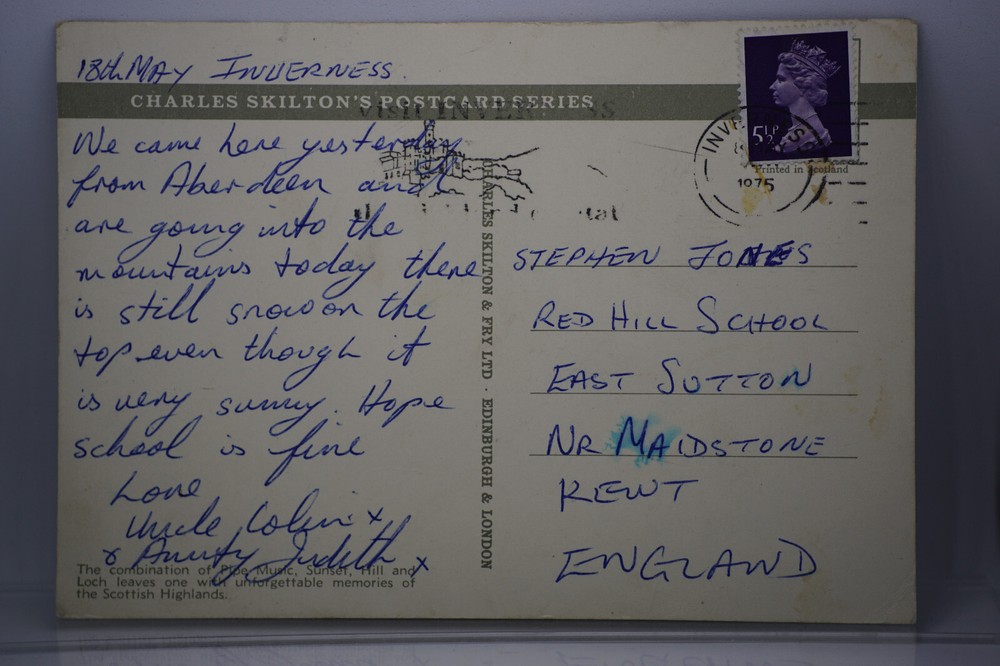 18th MAY INVERNESS.
CHARLES SKILTON'S POSTCARD SERIES
VISIT INVERNESS
We came here yesterday
from Aberdeen and
are going into the
mountains today there
is still snow on the
top even though it
is very sunny. Hope
school is fine
Love
Uncle Colin x
& Aunty Judith x
The combination of Pipe Music, Sunset, Hill and
Loch leaves one with unforgettable memories of
the Scottish Highlands.
CHARLES SKILTON & FRY LTD · EDINBURGH & LONDON
5½P
Printed in Scotland
1975
STEPHEN JONES
RED HILL SCHOOL
EAST SUTTON
NR MAIDSTONE
KENT
ENGLAND